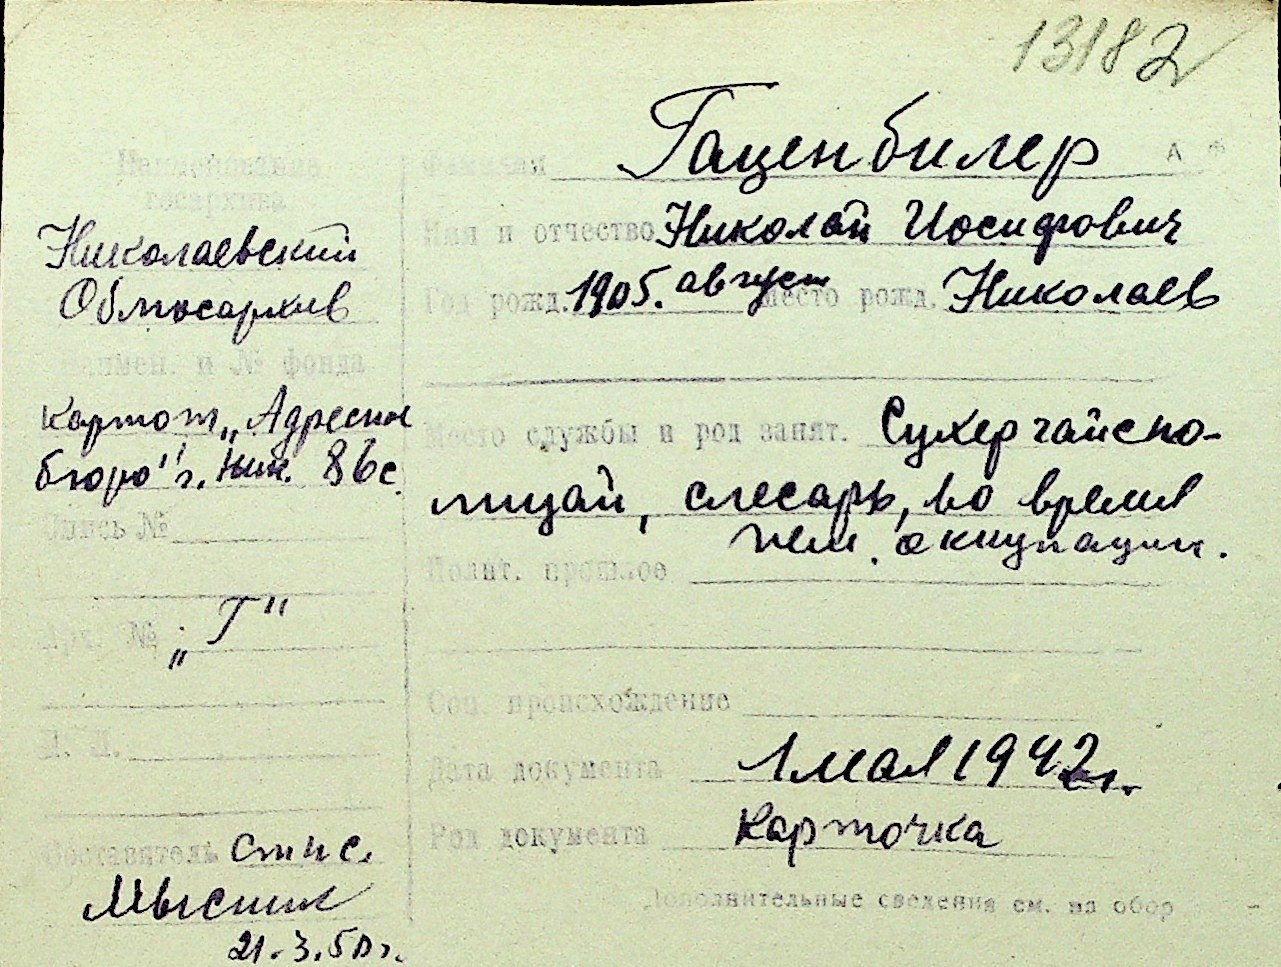 13182
Наименование
госархива
Николаевский
Облгосархив
Наимен. и № фонда
картот. „Адресное
бюро" г. Ник. 86с.
Опись №
Арх. № „Г"
Л. Л.
Составитель стнс.
21.3.50 г.
Фамилия Гаценбилер А
Имя и отчество Николай Иосифович
Год рожд. 1905. август Место рожд. Николаев
Место службы и род занят. Сухергайспо-
лицай, слесарь, во время
нем. окиупации.
Полит. прошлое
Соц. происхождение
Дата документа 1 мая 1942 г.
Род документа Карточка
Дополнительные сведения см. на обор